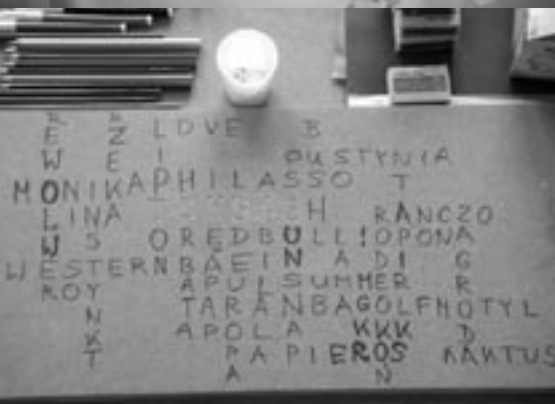 LOVE B
PUSTYNIA
MONIKA PHILASSO T
LINA H RANCZO
S O REDBULL!OPONA
WESTERN BAEINADI G
ROY APULSUMMER R
N TARANBAGOLFMOTYL
K APOLA KKK D
T PAPIEROS KAKTUS
A N